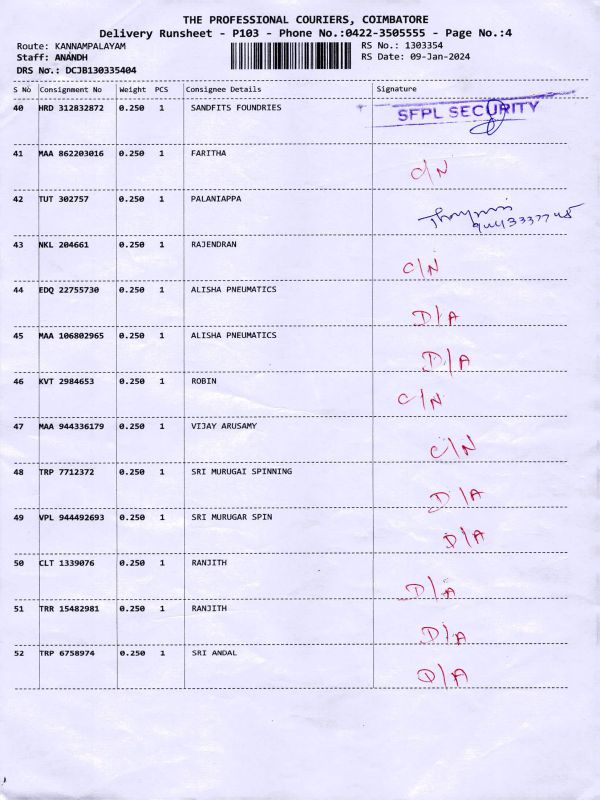 THE PROFESSIONAL COURIERS, COIMBATORE
Delivery Runsheet - P103 - Phone No.:0422-3505555 - Page No.:4
Route: KANNAMPALAYAM RS No.: 1303354
Staff: ANANDH RS Date: 09-Jan-2024
DRS No.: DCJB130335404
S No Consignment No Weight PCS Consignee Details Signature
40 HRD 312832872 0.250 1 SANDFITS FOUNDRIES SFPL SECURITY
41 MAA 862203016 0.250 1 FARITHA C/N
42 TUT 302757 0.250 1 PALANIAPPA
43 NKL 204661 0.250 1 RAJENDRAN C/N
44 EDQ 22755730 0.250 1 ALISHA PNEUMATICS D/A
45 MAA 106802965 0.250 1 ALISHA PNEUMATICS D/A
46 KVT 2984653 0.250 1 ROBIN C/N
47 MAA 944336179 0.250 1 VIJAY ARUSAMY C/N
48 TRP 7712372 0.250 1 SRI MURUGAI SPINNING D/A
49 VPL 944492693 0.250 1 SRI MURUGAR SPIN D/A
50 CLT 1339076 0.250 1 RANJITH D/A
51 TRR 15482981 0.250 1 RANJITH D/A
52 TRP 6758974 0.250 1 SRI ANDAL D/A